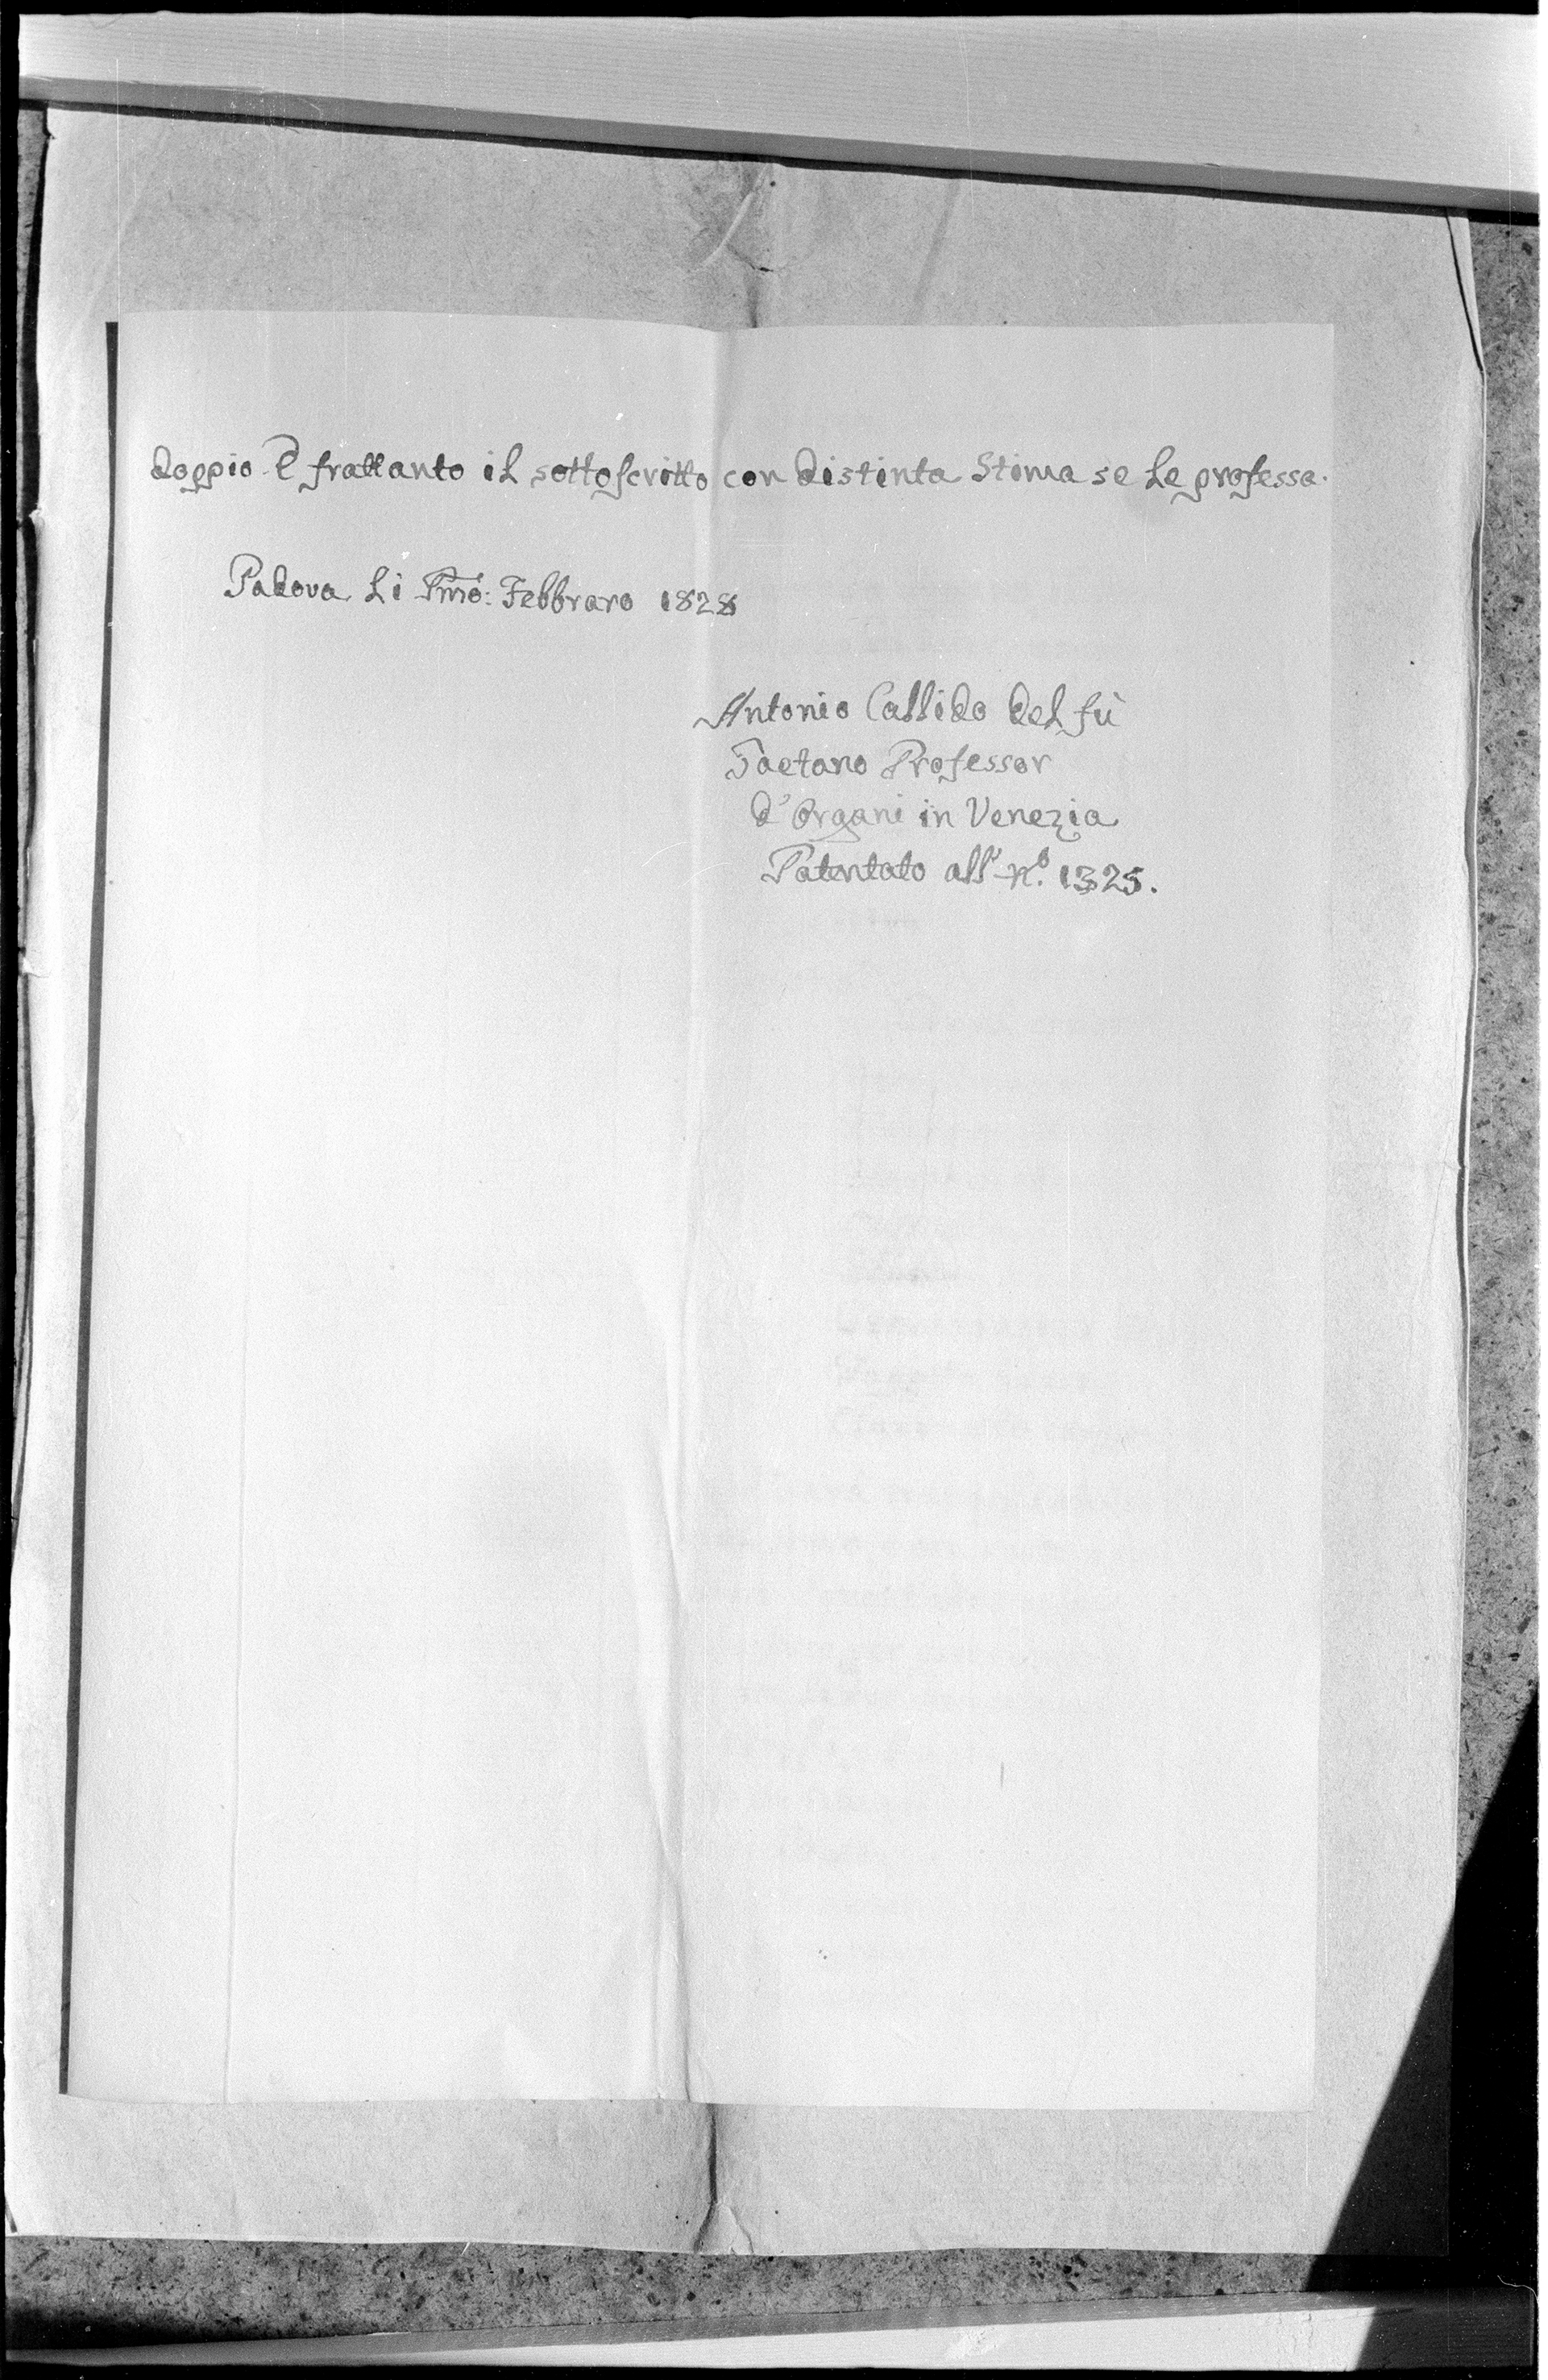 doppio E frattanto il sottoscritto con distinta Stima se le professa.
Padova li Pmo: Febbraro 1828
Antonio Callido del fù
Gaetano Professor
d'Organi in Venezia
Patentato all' N.º 1325.